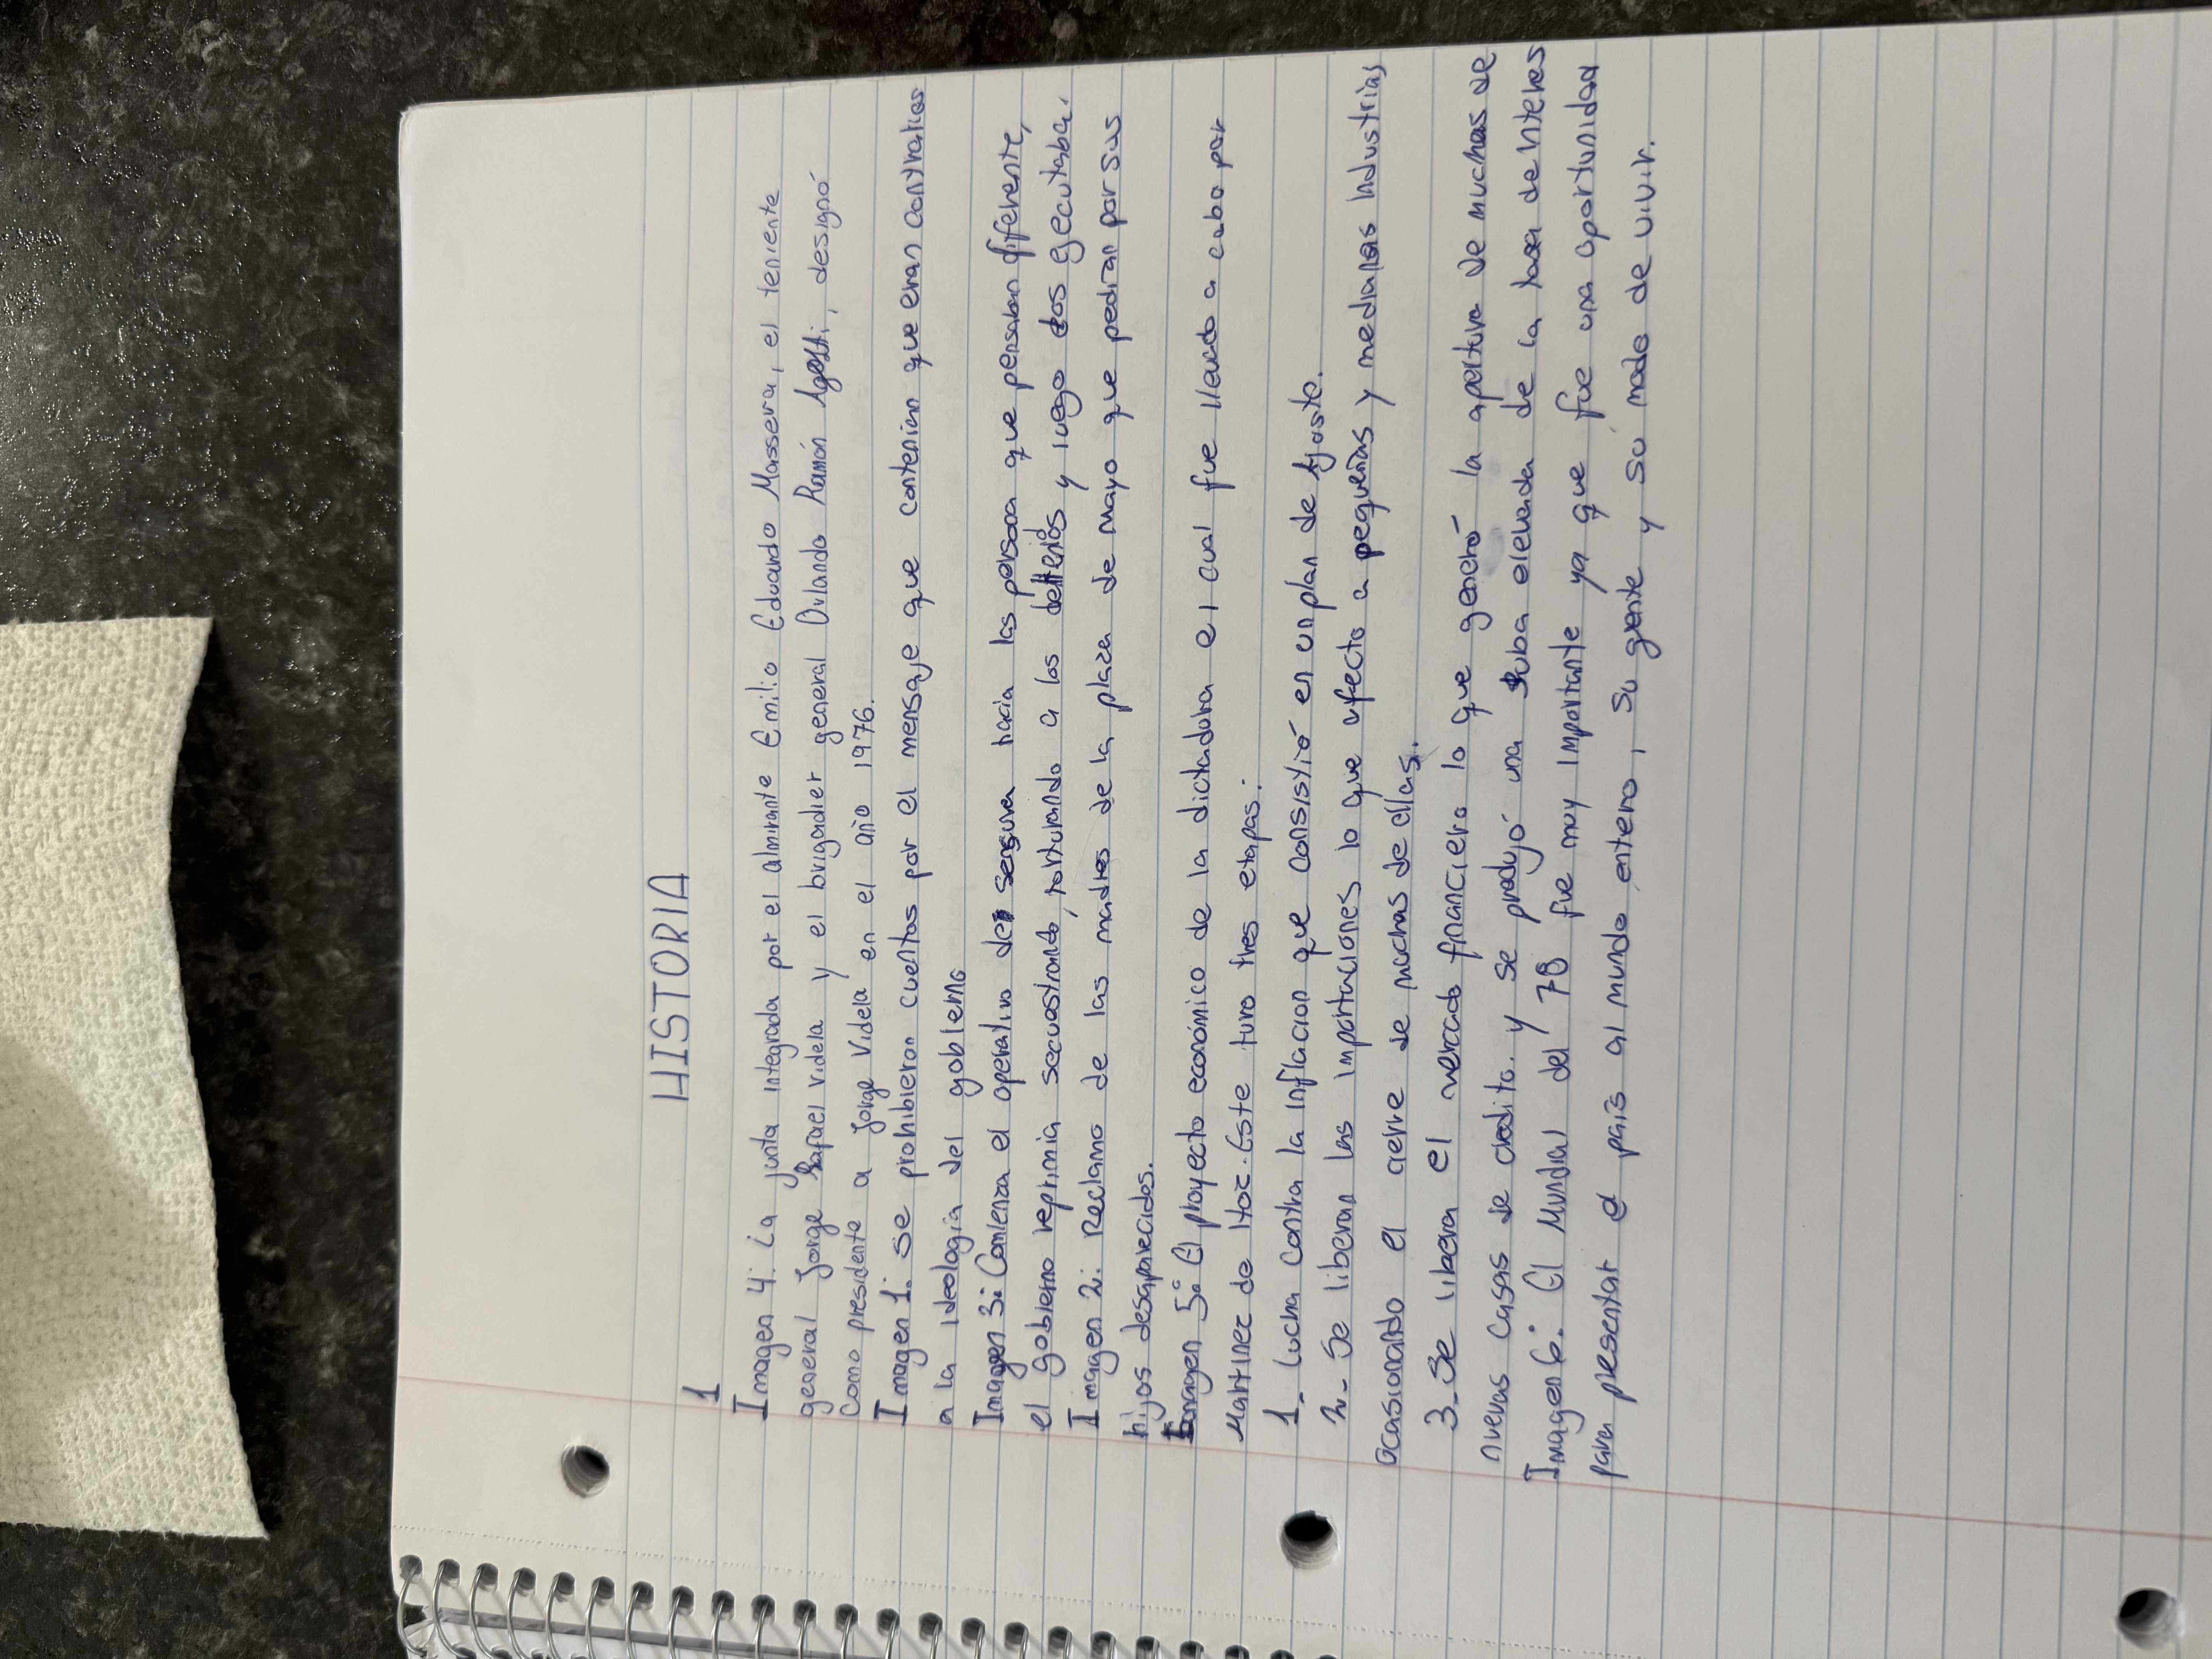 HISTORIA
1
Imagen 4: La junta integrada por el almirante Emilio Eduardo Massera, el teniente
general Jorge Rafael Videla y el brigadier general Orlando Ramón Agosti, designó
como presidente a Jorge Videla en el año 1976.
Imagen 1: se prohibieron cuentos por el mensaje que contenian que eran contrarios
a la ideologia del gobierno
Imagen 3: Comienza el operativo de sensura hacia las persona que pensaban diferente,
el gobierno reprimia secuestrando, torturando a los detenidos y luego los ejecutaba.
Imagen 2: Reclamo de las madres de la plaza de Mayo que pedian por sus
hijos desaparecidos.
Imagen 5: El proyecto económico de la dictadura el cual fue llevado a cabo por
Martinez de Hoz. Este tuvo tres etapas:
1- Lucha contra la inflacion que consistió en un plan de Ajuste.
2- Se liberan las importaciones lo que afecto a pequeñas y medianas Industrias
ocasionando el cierre de muchas de ellas.
3- Se libera el mercado financiero lo que generó la apertura de muchas de
nuevas casas de credito. y se produjo una suba elevada de la tasa de interes
Imagen 6: El Mundial del 78 fue muy importante ya que fue una oportunidad
para presentar el país al mundo entero, su gente y su modo de vivir.